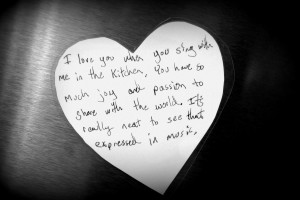 I love you when you sing with
me in the kitchen, You have so
much joy and passion to
share with the world. It's
really neat to see that
expressed in music.